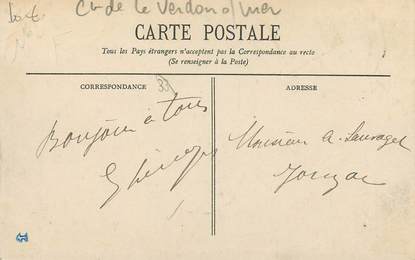 Cne de le Verdon s/mer
CARTE POSTALE
Tous les Pays étrangers n'acceptent pas la Correspondance au recto
(Se renseigner à la Poste)
CORRESPONDANCE
ADRESSE
33
Bonjour à tous
Monsieur A. Sauvaget
Jonzac